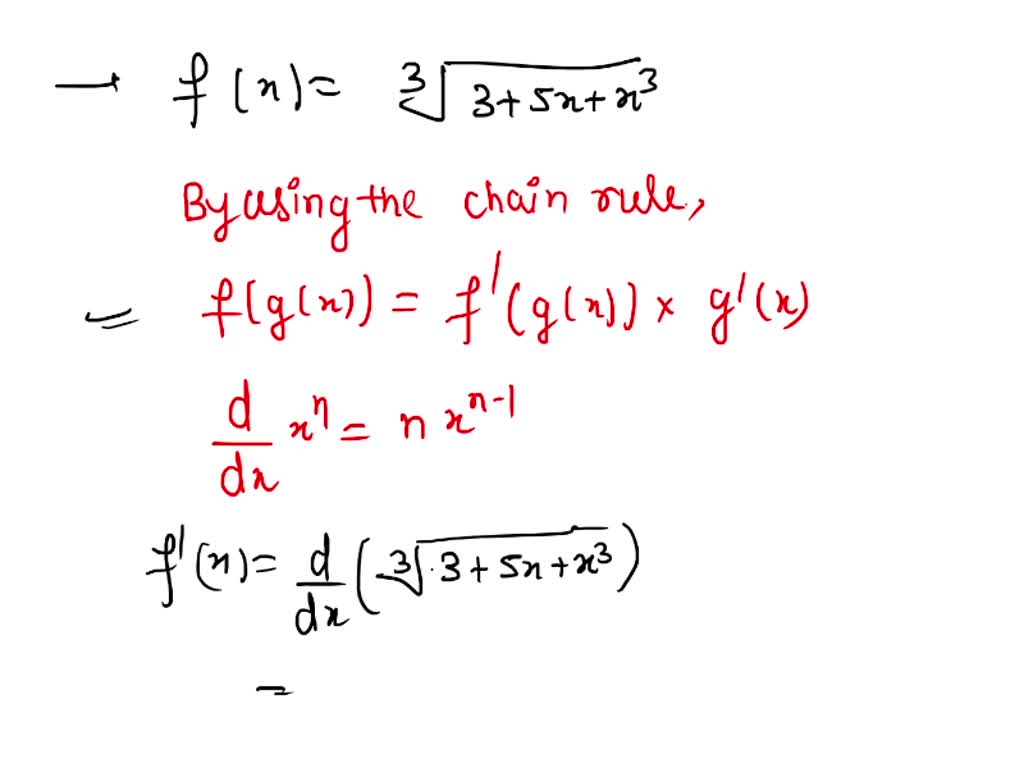 → f(x) = ∛(3+5x+x³)
By using the chain rule,
f(g(x)) = f'(g(x)) × g'(x)
d/dx xⁿ = n xⁿ⁻¹
f'(x) = d/dx (∛(3+5x+x³))
=